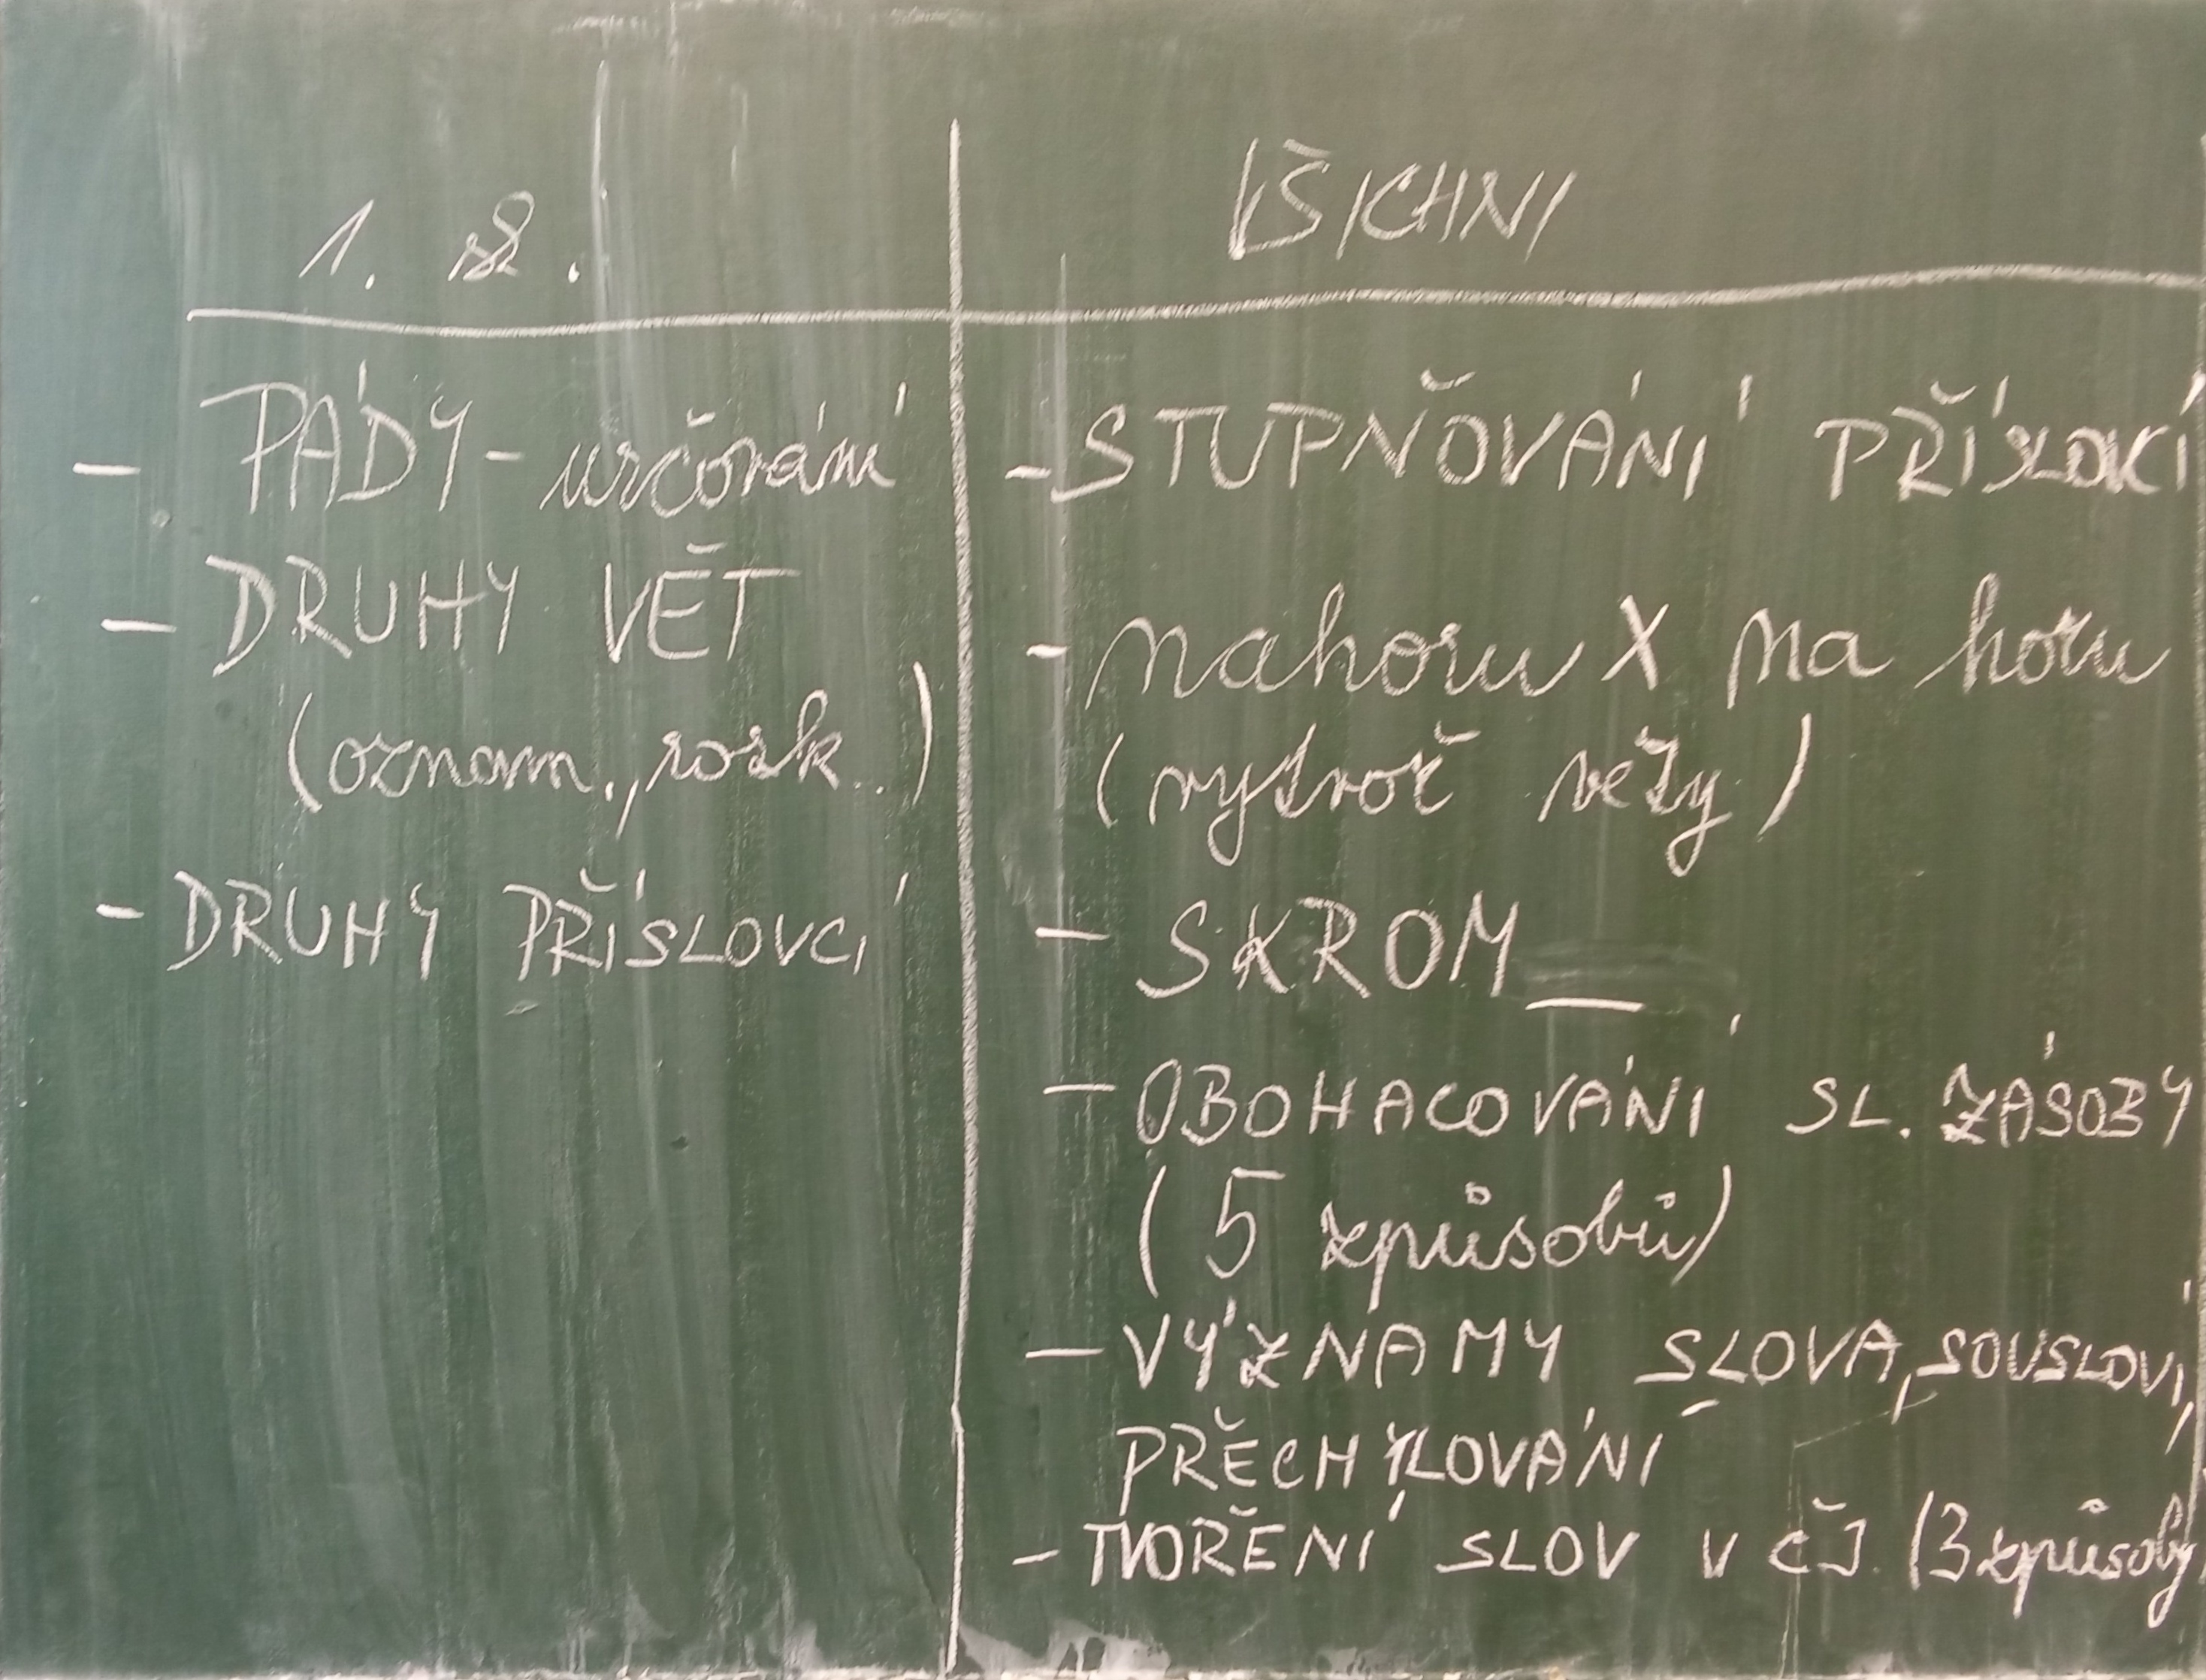 1. sk.
- PÁDY - určování
- DRUHY VĚT
(oznam., rozk..)
- DRUHY PŘÍSLOVCÍ
VŠICHNI
- STUPŇOVÁNÍ PŘÍSLOVCÍ
- nahoru X na horu
(vytvoř věty)
- SKROM_
- OBOHACOVÁNÍ SL. ZÁSOBY
(5 způsobů)
- VÝZNAMY SLOVA, SOUSLOVÍ,
PŘECHYLOVÁNÍ
- TVOŘENÍ SLOV V ČJ. (3 způsoby